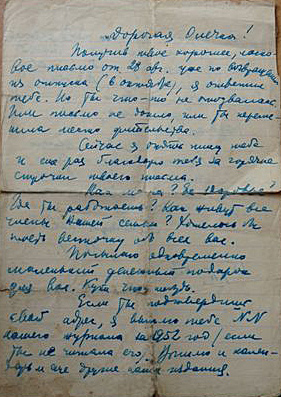 Дорогая Олечка!
Получив твое хорошее, ласко-
вое письмо от 28 авг. уже по возвращении
из отпуска (6 октября), я ответил
тебе. Но ты что-то не отозвалась.
Или письмо не дошло, или ты переме-
нила место жительства.
Сейчас я опять пишу тебе
и еще раз благодарю тебя за горячие
строчки твоего письма.
Как ты? Здорова?
Где ты работаешь? Как живут все
члены Вашей семьи? Хотелось бы
иметь весточку от всех вас.
Посылаю одновременно
маленький денежный подарок
для Вас. Купи что-нибудь.
Если ты подтвердишь
свой адрес, я вышлю тебе NN
нашего журнала за 1952 год (если
ты не читала его). Вышлю и кален-
дарь и др. другие наши издания.